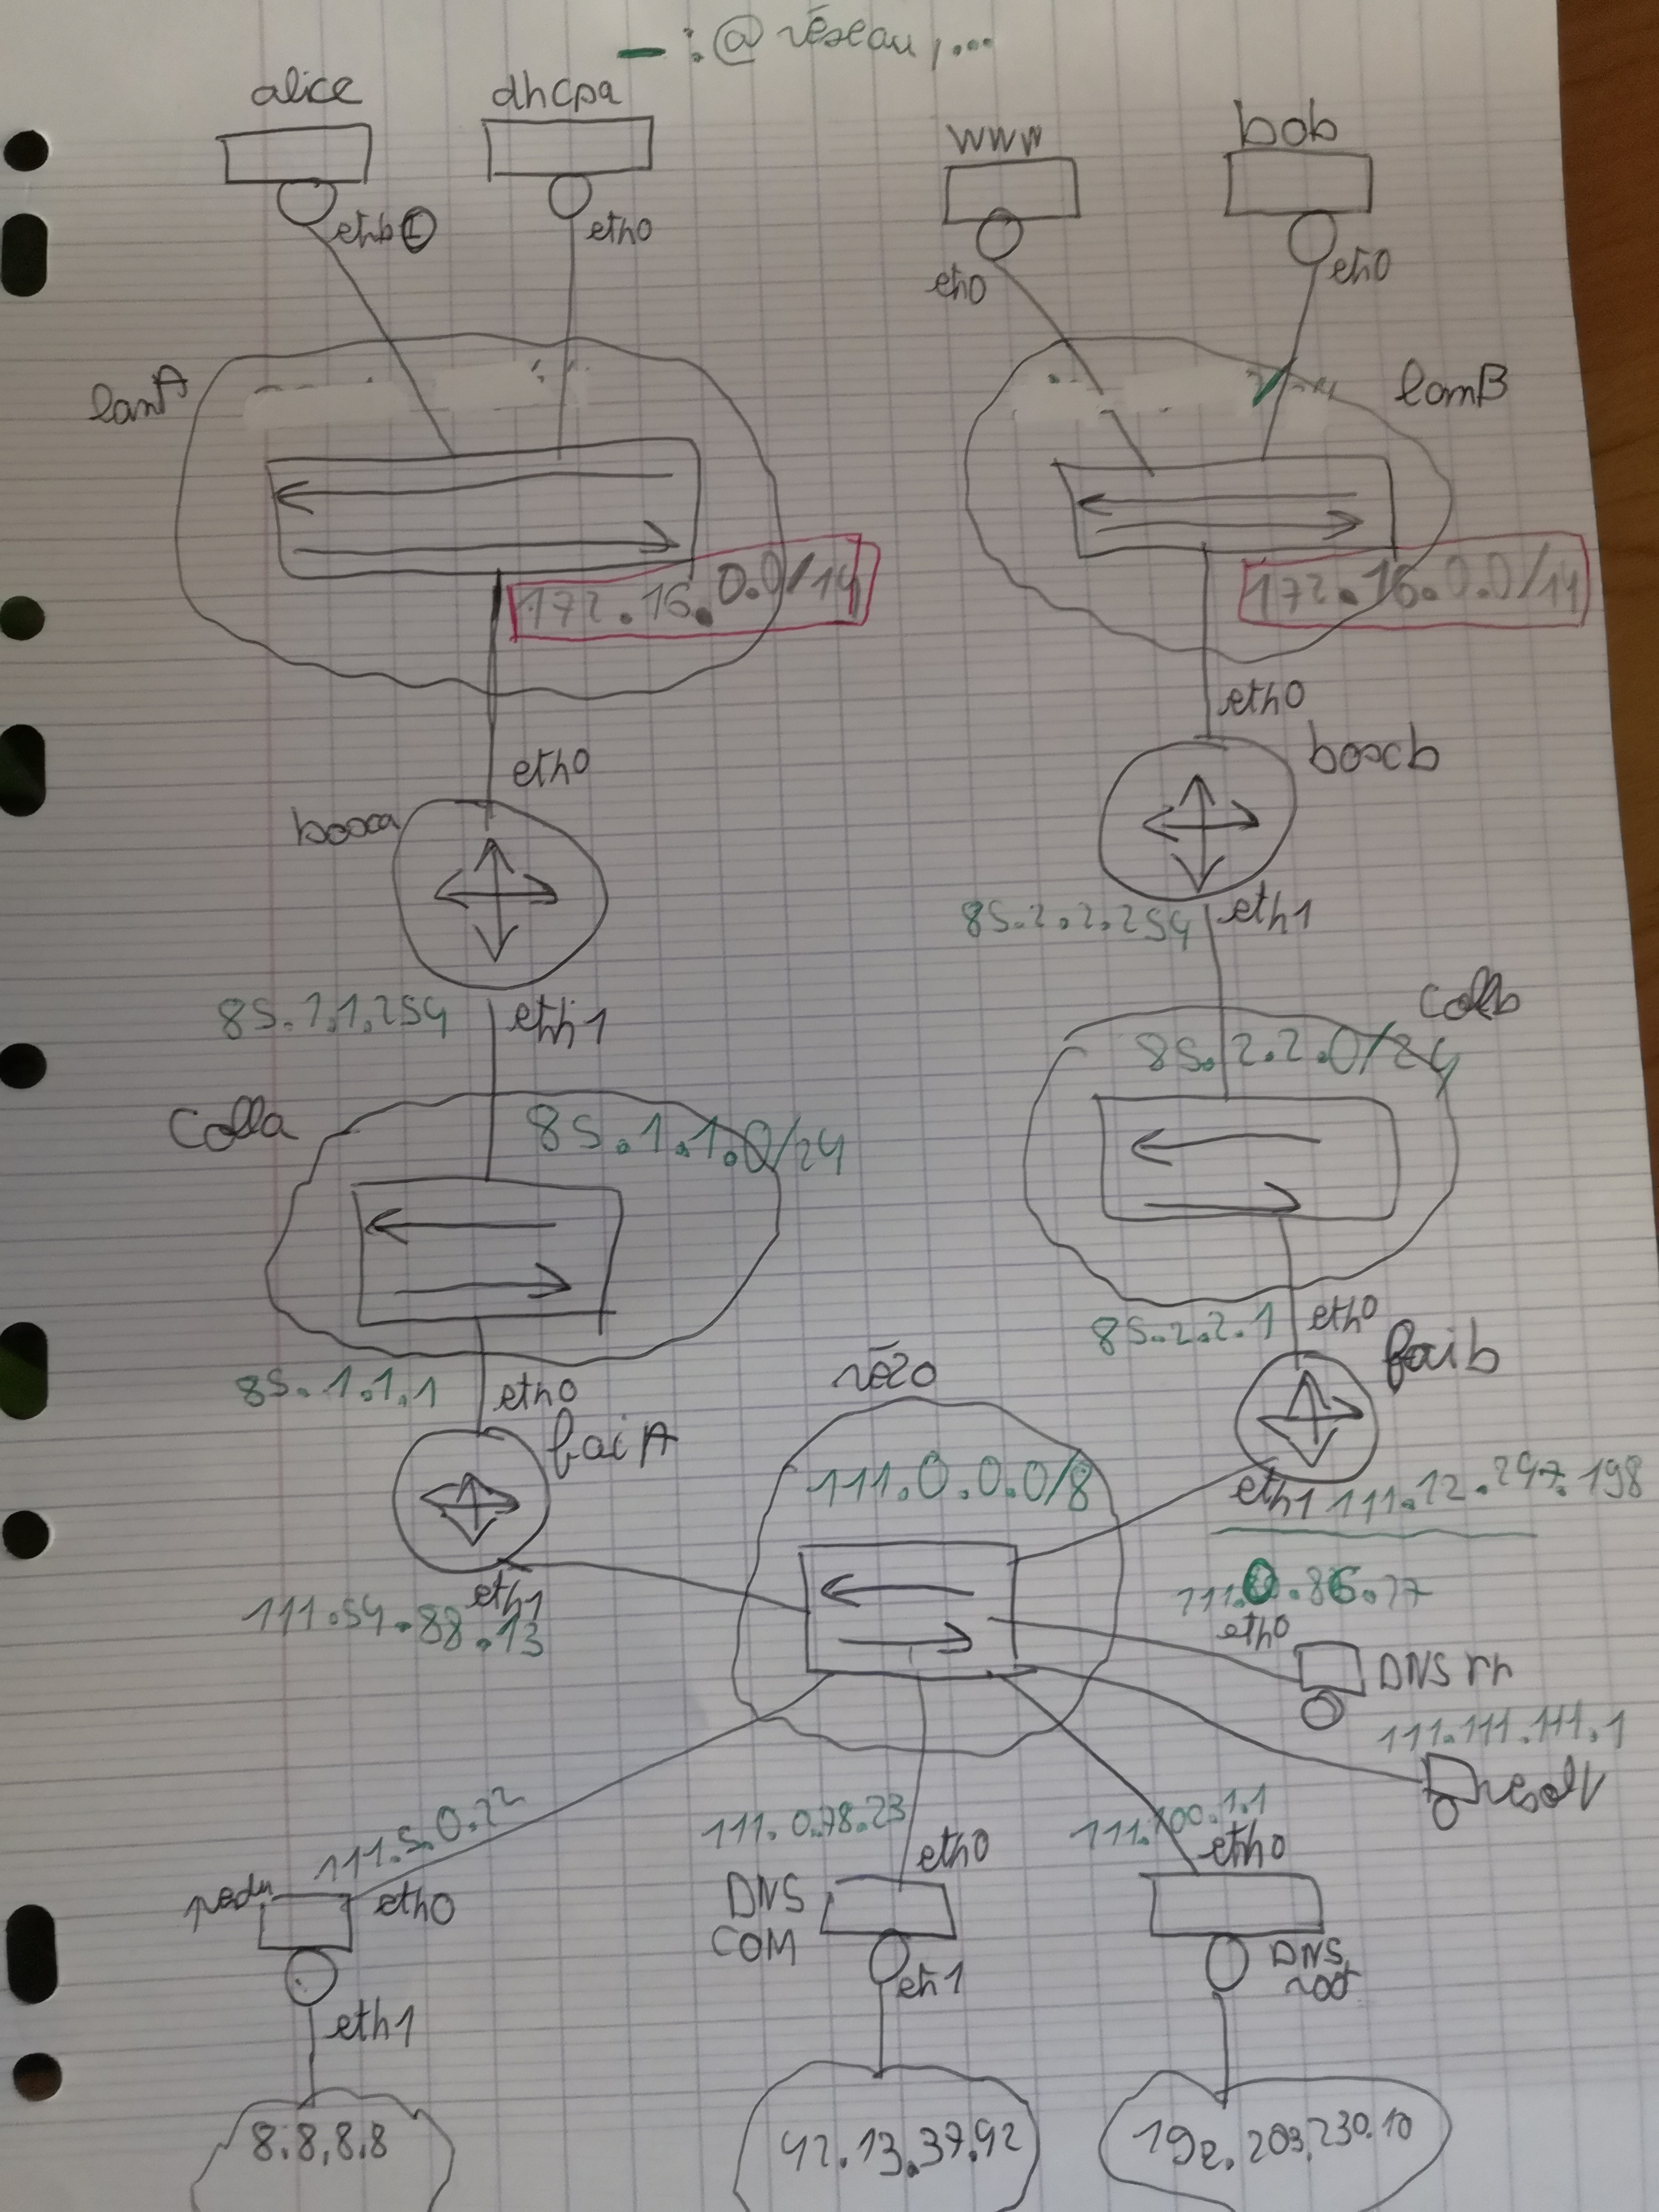 — : @ réseau, ...
alice
dhcpa
www
bob
eth0
eth0
eth0
lanA
lanB
172.16.0.0/14
172.16.0.0/14
eth0
eth0
boxb
boxa
85.2.2.254
eth1
85.1.1.254
eth1
Collb
85.2.2.0/24
Colla
85.1.1.0/24
85.2.2.1
eth0
faib
85.1.1.1
eth0
faiA
rézo
111.0.0.0/8
eth1
111.12.247.198
eth1
111.54.88.13
111.0.86.77
eth0
DNS rh
111.111.111.1
resolv
111.5.0.22
111.0.78.23
111.100.1.1
eth0
eth0
eth0
DNS
COM
DNS
root
eth1
eth1
8.8.8.8
42.13.37.42
192.203.230.10